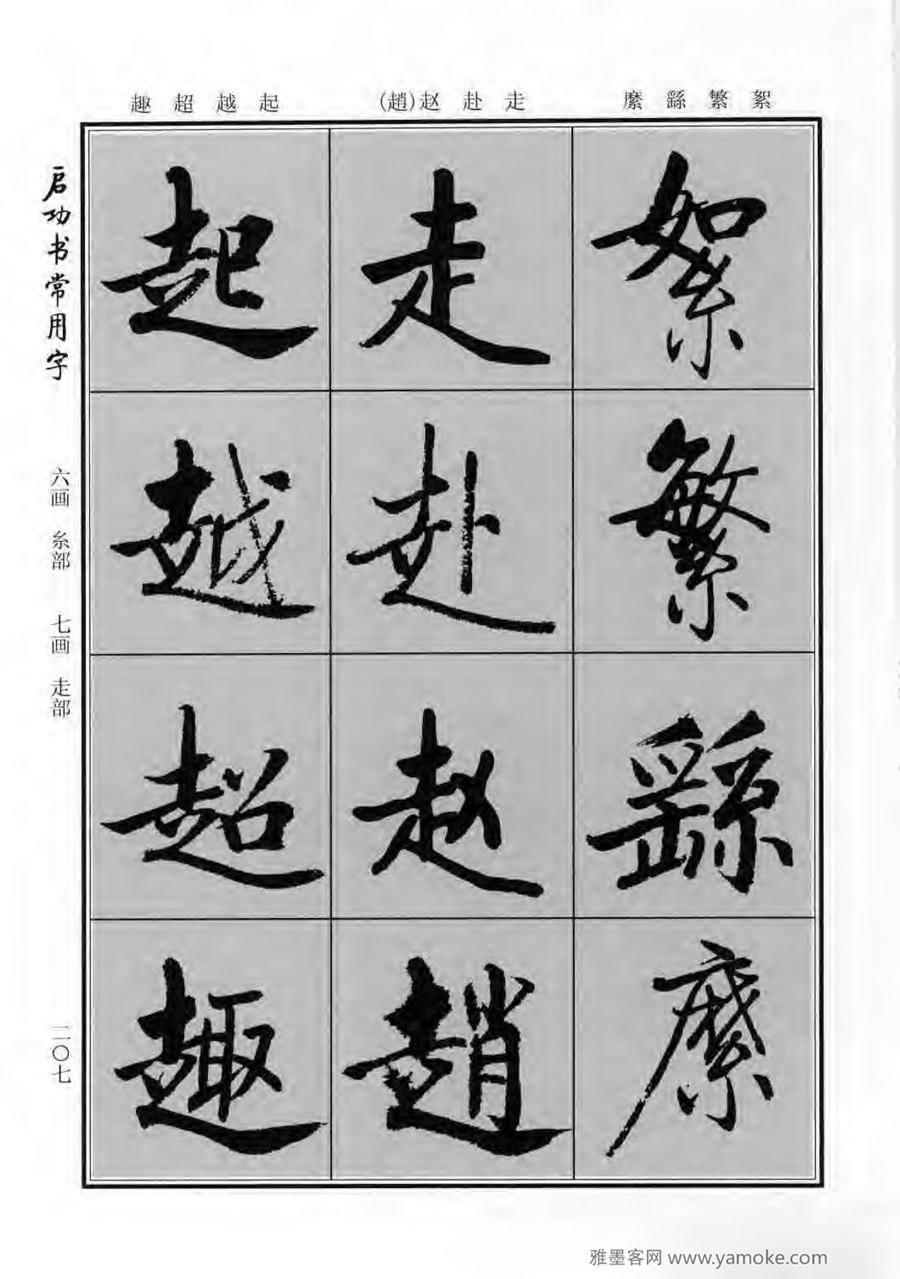 絮繁繇縻
走赴赵(趙)
起越超趣
絮繁繇縻
走赴赵趙
起越超趣
启功书常用字
六画 糸部 七画 走部
二〇七
雅墨客网 www.yamoke.com